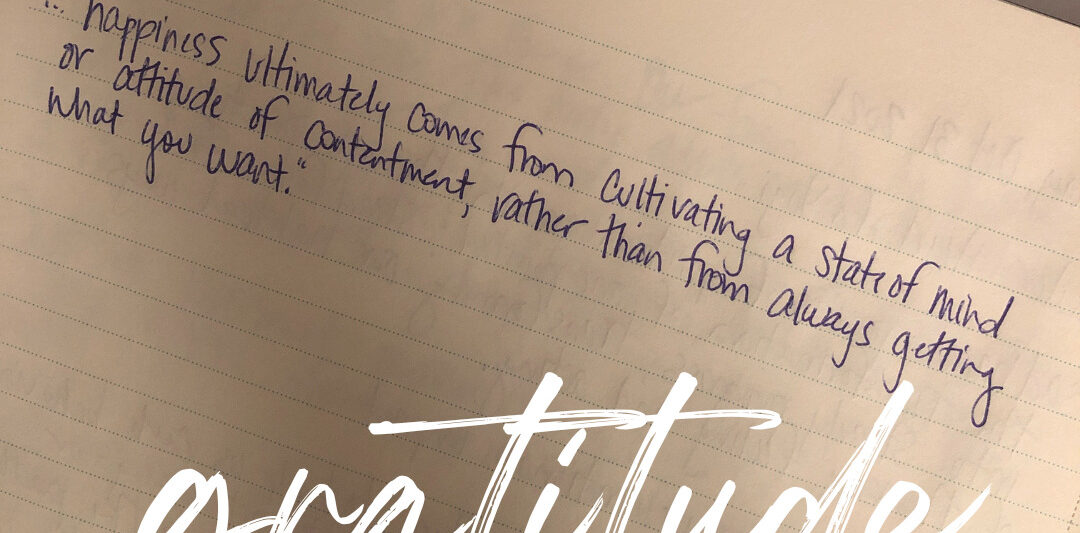 "... happiness ultimately comes from cultivating a state of mind
or attitude of contentment, rather than from always getting
what you want."
gratitude